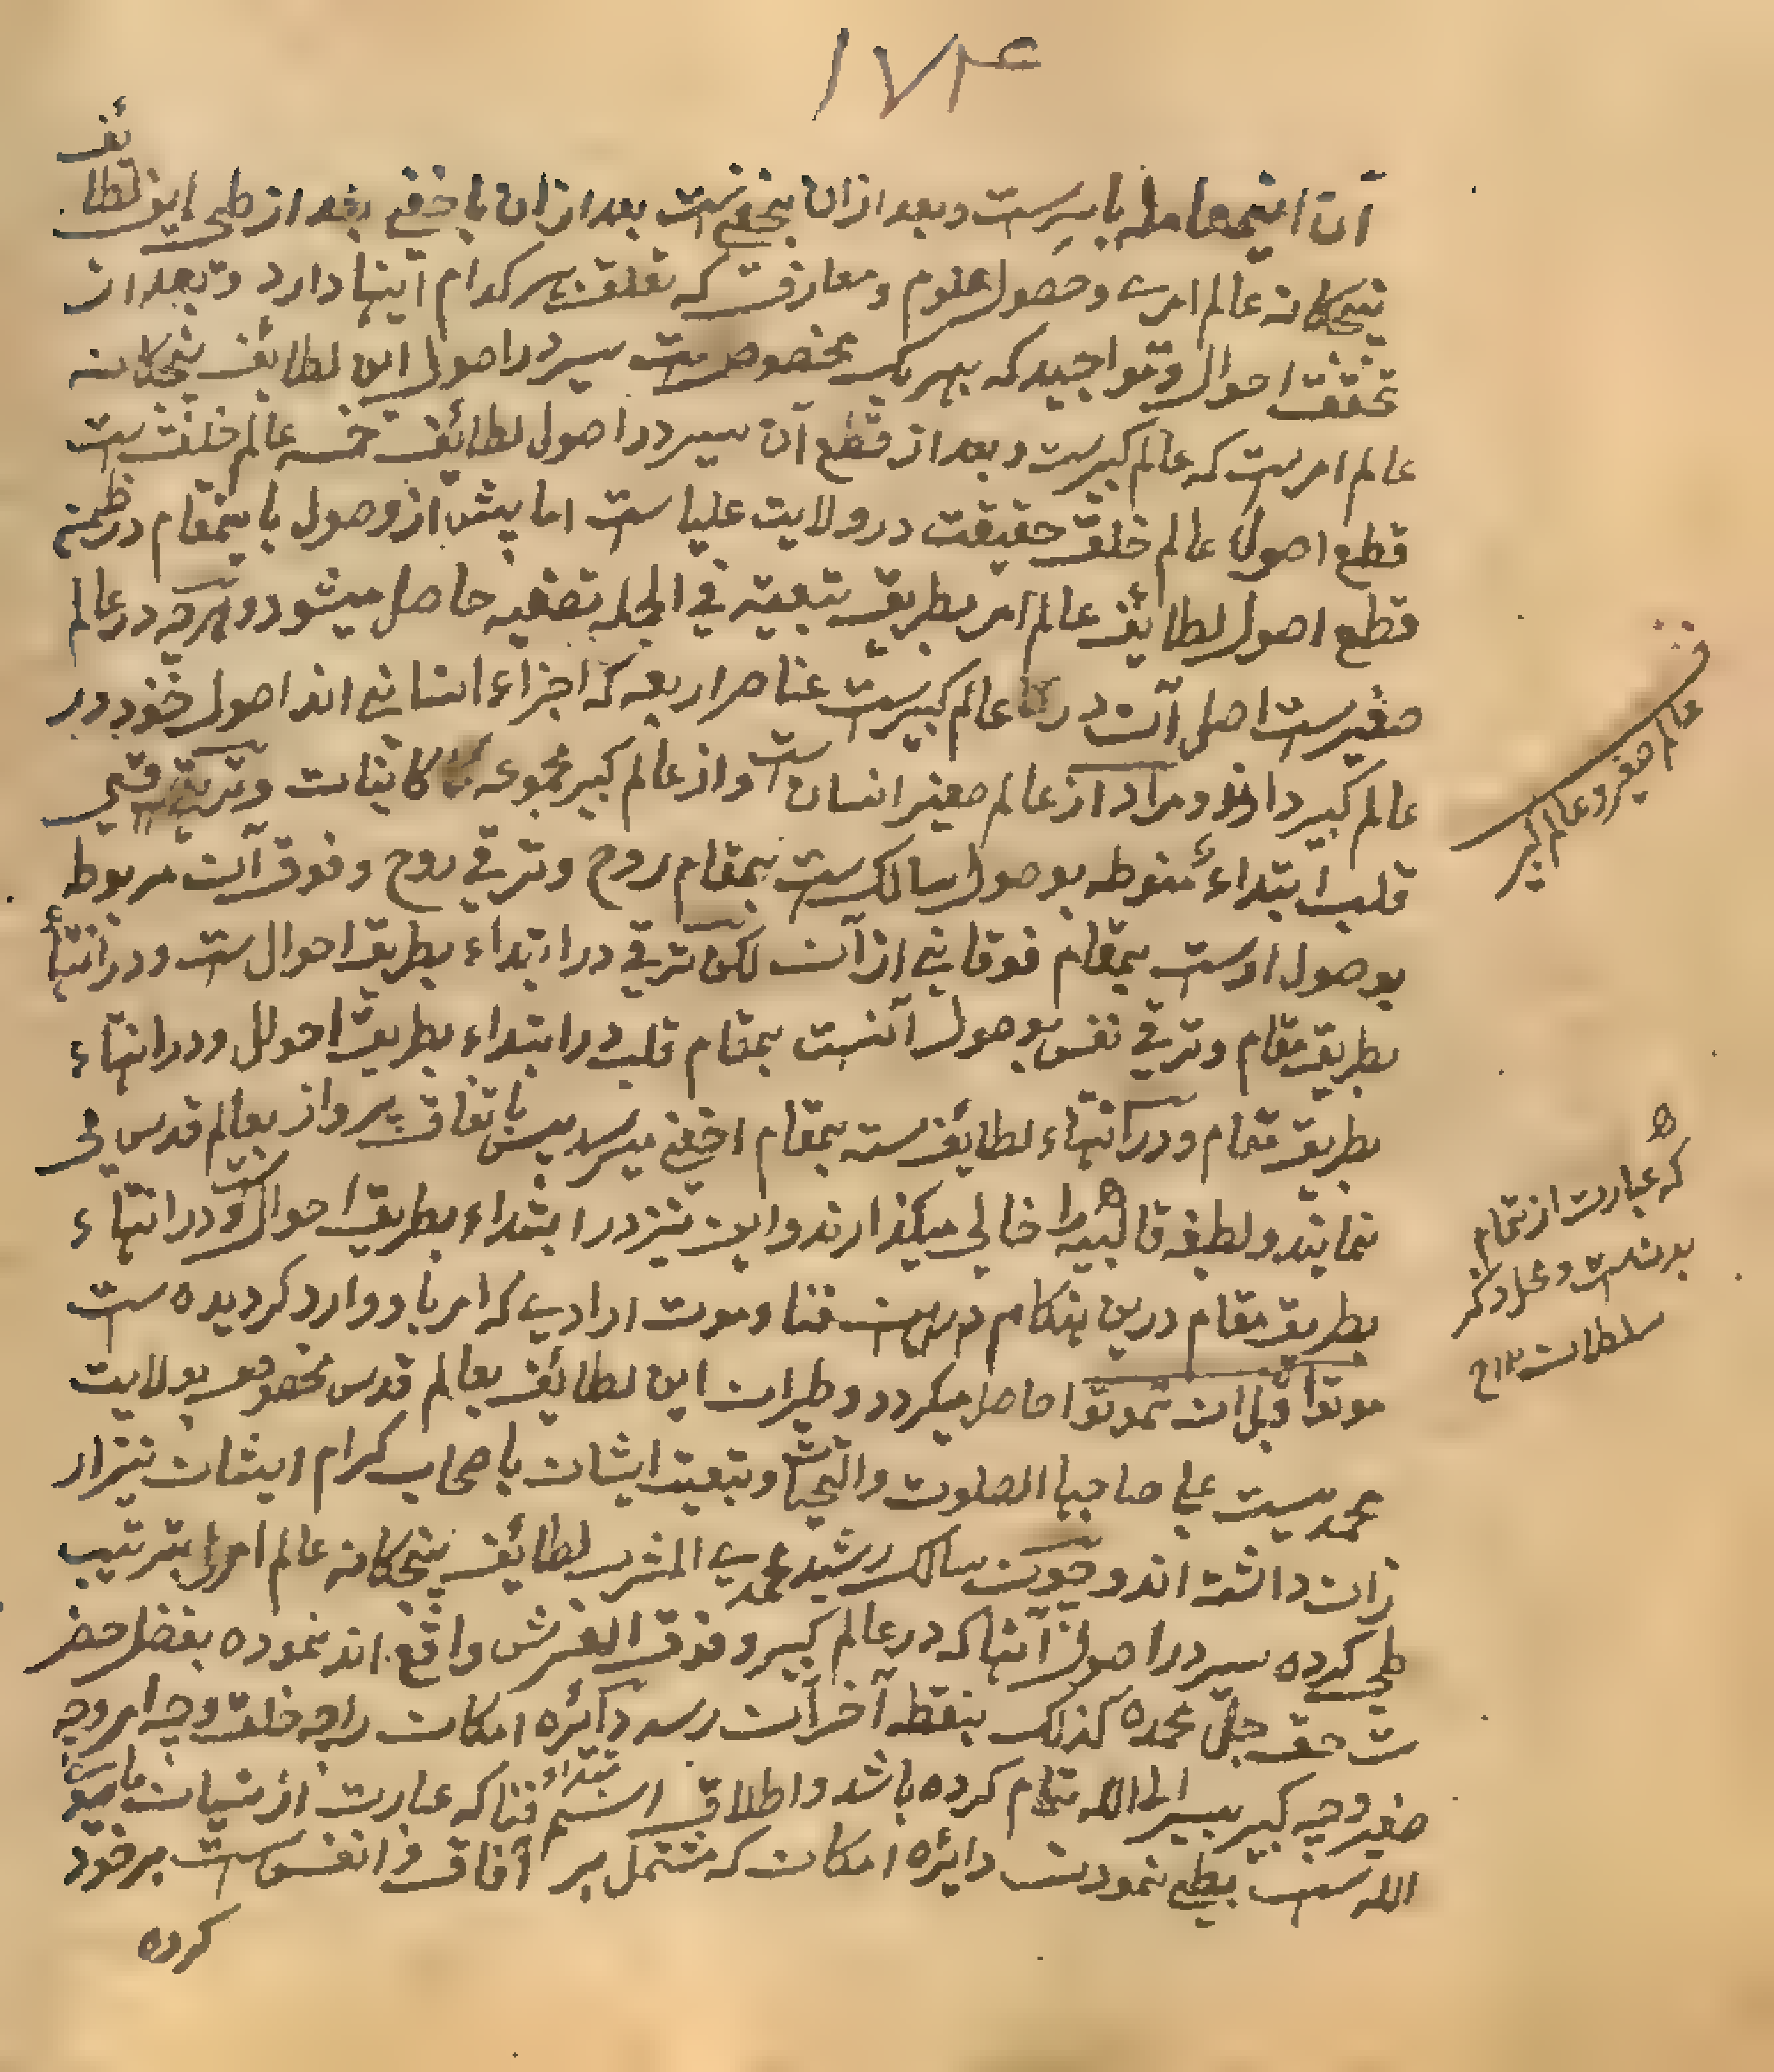 ۱۷۴
آن اینمعامله با سرست و بعد ازان بخفی ست بعد ازان با خفی بعد از طی این لطائف
پنجکانه عالم امری و حصول علوم و معارف که تعلق بهر کدام اینها دارد و بعد از
تحقق احوال و مواجید که بهر یک مخصوص ست سیر در اصول این لطائف پنجکانه
عالم امرست که عالم کبیرست و بعد از قطع آن سیر در اصول لطائف خمسه عالم خلق ست
قطع اصول عالم خلق حقیقت در ولایت علیا ست اما پیش از وصول باینمقام در ضمن
قطع اصول لطائف عالم امر بطریق تبعیة فی الجمله تصفیه حاصل میشود و هرچه در عالم
صغیرست اصل آن در عالم کبیرست عناصر اربعه که اجزاء انسانی اند اصول خود در
عالم کبیر دارند و مراد از عالم صغیر انسان ست و از عالم کبیر مجموعه کاینات و ترقی
قلب ابتداء منوطه بوصول سالک ست بمقام روح و ترقی روح و فوق آن مربوط
بوصول اوست بمقام فوقانی ازآن لکن ترقی در ابتداء بطریق احوال ست و در انتهاء
بطریق مقام و ترقی نفس بوصول آنست بمقام قلب در ابتداء بطریق احوال و در انتهاء
بطریق مقام و در انتهاء لطائف سته بمقام اخفی میرسد پس باتفاق پرواز بعالم قدس می
نمایند و لطیفه قالبیه را خالی میگذارند و این نیز در ابتداء بطریق احوال ست و در انتهاء
بطریق مقام درین هنکام فنا و موت ارادی که امر باو وارد کردیده ست
موتوا قبل ان تموتوا حاصل میکردد و طیران این لطائف بعالم قدس مخصوص بولایت
محمدیست علی صاحبها الصلوت والتحیات و بتبعیت ایشان باصحاب کرام ایشان نیز ار
زان داشته اند و چون سالک رشید محمدی المشرب لطائف پنجکانه عالم امر را بترتیب
طی کرده سیر در اصول آنها که در عالم کبیر و فوق العرش واقع اند نموده بفضل حضر
ت حق جل مجده کذلک بنقطه آخر آن رسد دائره امکان را چه خلق و چه امر و چه
صغیر و چه کبیر بسیر الی الله تمام کرده باشد و اطلاق اسم ابتداء فنا که عبارت از نسیان ما سوی
الله ست بطی نمودن دائره امکان که مشتمل بر آفاق و انفس ست بر خود
کرده
ف
عالم صغیر و عالم کبیر
ه
که عبارت از تمام
بدنست و محل ذکر
سلطانست ۱۲